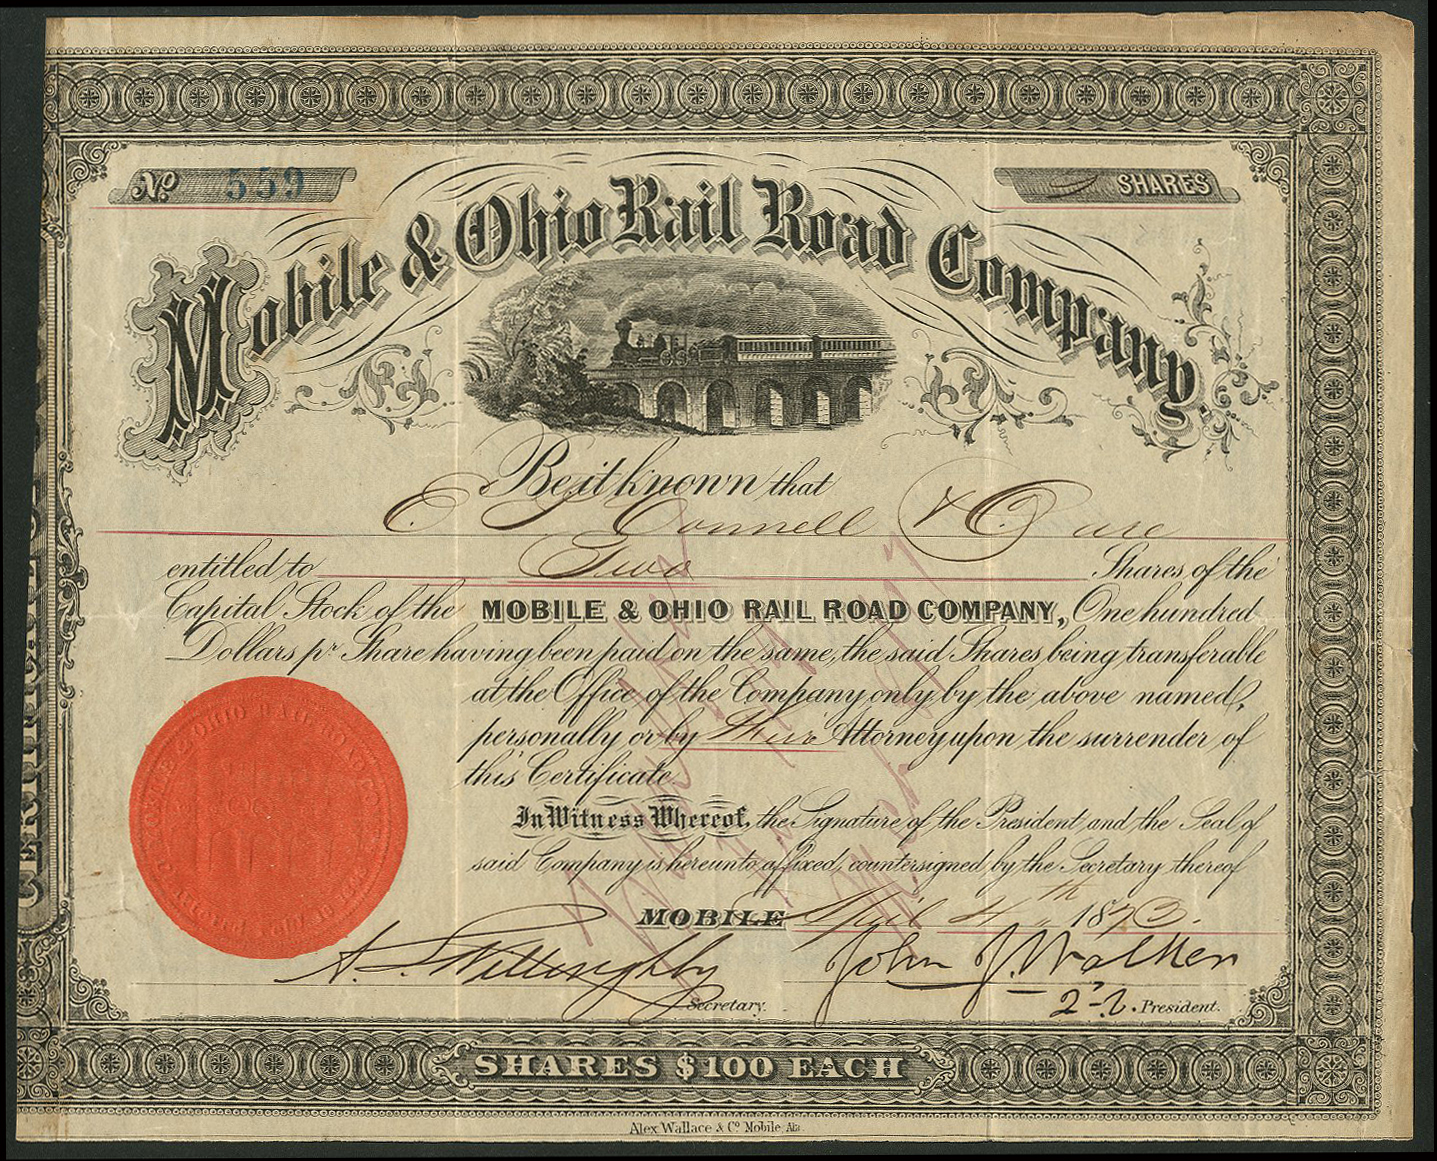 No 559
2 SHARES
Mobile & Ohio Rail Road Company.
Be it known that
entitled to Two Shares of the
Capital Stock of the MOBILE & OHIO RAIL ROAD COMPANY, One hundred
Dollars pr Share having been paid on the same, the said Shares being transferable
at the Office of the Company only by the above named,
personally or by their Attorney upon the surrender of
this Certificate.
In Witness Whereof, the Signature of the President and the Seal of
said Company is hereunto affixed, countersigned by the Secretary thereof
MOBILE April 4th 1873.
John J. Walker
Secretary.
2d V. President.
SHARES $100 EACH
Alex Wallace & Co Mobile, Ala.